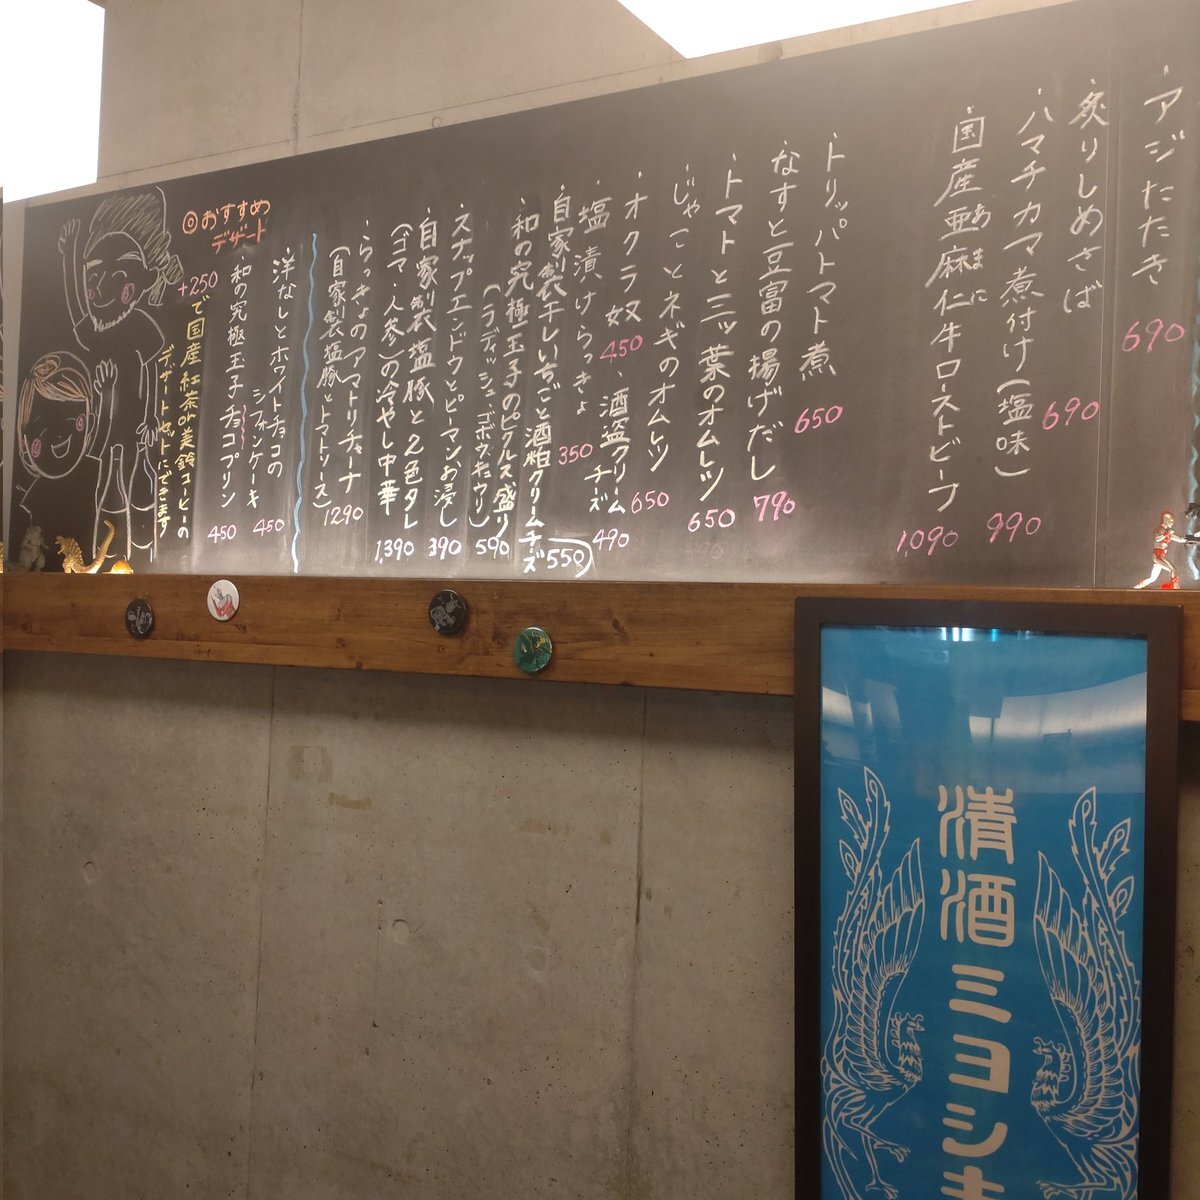 ・アジたたき 690
・炙りしめさば 690
・ハマチカマ煮付け(塩味) 990
・国産亜麻仁牛ローストビーフ 1,090
あまに
・トリッパトマト煮 650
・なすと豆富の揚げだし 790
・トマトと三ッ葉のオムレツ 650
・じゃことネギのオムレツ 650
・オクラ奴 450
・酒盗クリームチーズ 490
・塩漬けらっきょ 350
・自家製干しいちごと酒粕クリームチーズ 550
・和の究極玉子のピクルス盛り 590
(ラディッシュ・ゴボウ・キュウリ)
・スナップエンドウとピーマンお浸し 390
・自家製塩豚と2色タレ
(ゴマ・人参)の冷やし中華 1,390
・らっきょのアマトリチャーナ
(自家製塩豚とトマトソース) 1290
◎おすすめ
デザート
・洋なしとホワイトチョコの
シフォンケーキ 450
・和の究極玉子チョコプリン 450
+250で国産紅茶or美鈴コーヒーの
デザートセットにできます
清酒ミヨシキ